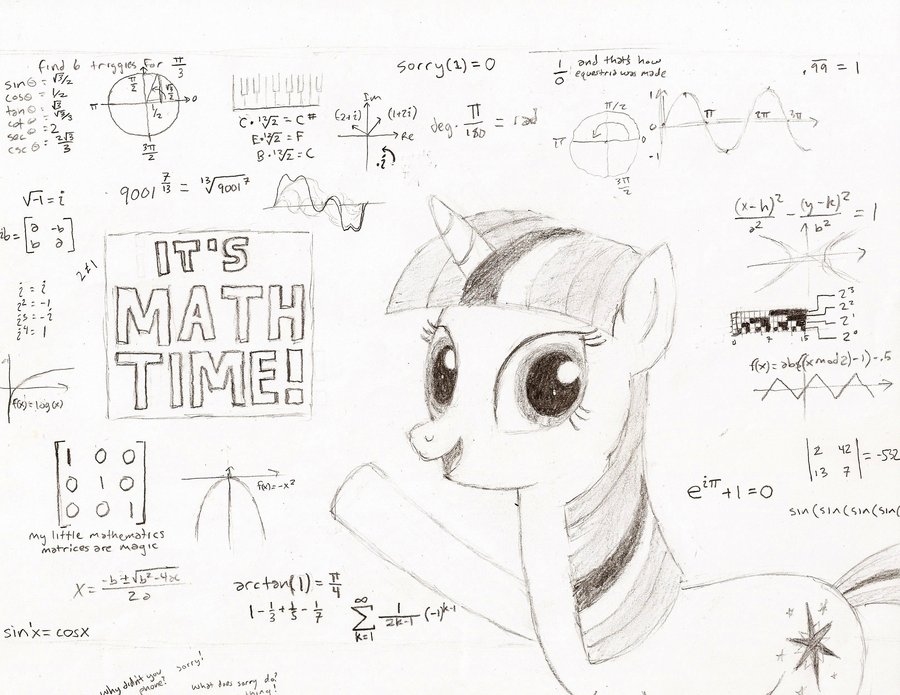 find 6 triggles for π/3
sinθ = √3/2
cosθ = 1/2
tanθ = √3
cotθ = √3/3
secθ = 2
cscθ = 2√3/3
π/2
√3/2
1/2
π
0
3π/2
C·¹²√2 = C#
E·¹²√2 = F
B·¹²√2 = C
Im
(-2+i)
(1+2i)
Re
·i
sorry(1) = 0
deg· π/180 = rad
1/0 and that's how
equestria was made
π/2
π
3π/2
1
0
-1
π
2π
3π
.99 = 1
√-1 = i
9001^(7/13) = ¹³√9001⁷
[a -b
b a]
2≠1
i = i
i² = -1
i³ = -i
i⁴ = 1
IT'S
MATH
TIME!
(x-h)²/a² - (y-k)²/b² = 1
2³
2²
2¹
2⁰
0 7 15
f(x) = abs((x mod 2)-1)-.5
f(x)=log(x)
1 0 0
0 1 0
0 0 1
my little mathematics
matrices are magic
f(x)=-x²
e^(iπ)+1=0
|2 42
13 7| = -532
sin(sin(sin(sin(
x = (-b±√(b²-4ac))/2a
arctan(1) = π/4
1 - 1/3 + 1/5 - 1/7
∞
Σ 1/(2k-1) (-1)^(k-1)
k=1
sin'x = cosx
why didn't you
phone?
sorry!
what does sorry do?